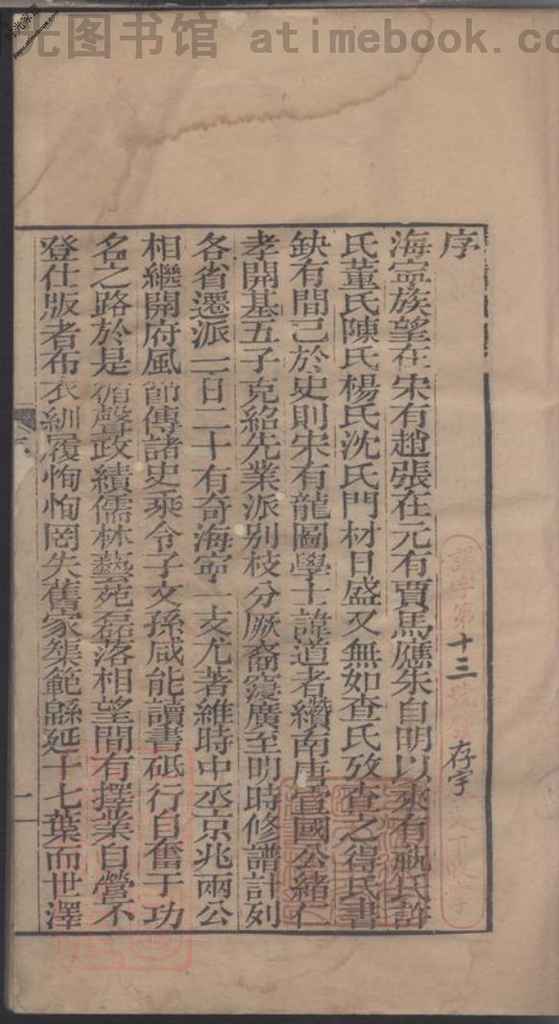 光图书馆 atimebook.com
序
海寧族望在宋有趙張在元有賈馬應朱自明以來有祝氏許
氏董氏陳氏楊氏沈氏門材日盛又無如查氏攷查之得氏書
缺有間已於史則宋有龍圖學士諱道者纘南唐宣國公緒仁
孝開基五子克紹先業派別枝分厥裔寖廣至明時修譜計列
各省遷派一百二十有奇海寧一支尤著維時中丞京兆兩公
相繼開府風節傳諸史乘令子文孫咸能讀書砥行自奮于功
名之路於是循聲政績儒林藝苑磊落相望間有擇業自營不
登仕版者布衣紃履恂恂罔失舊家榘範緜延十七葉而世澤
一
譜字第十三號
存字